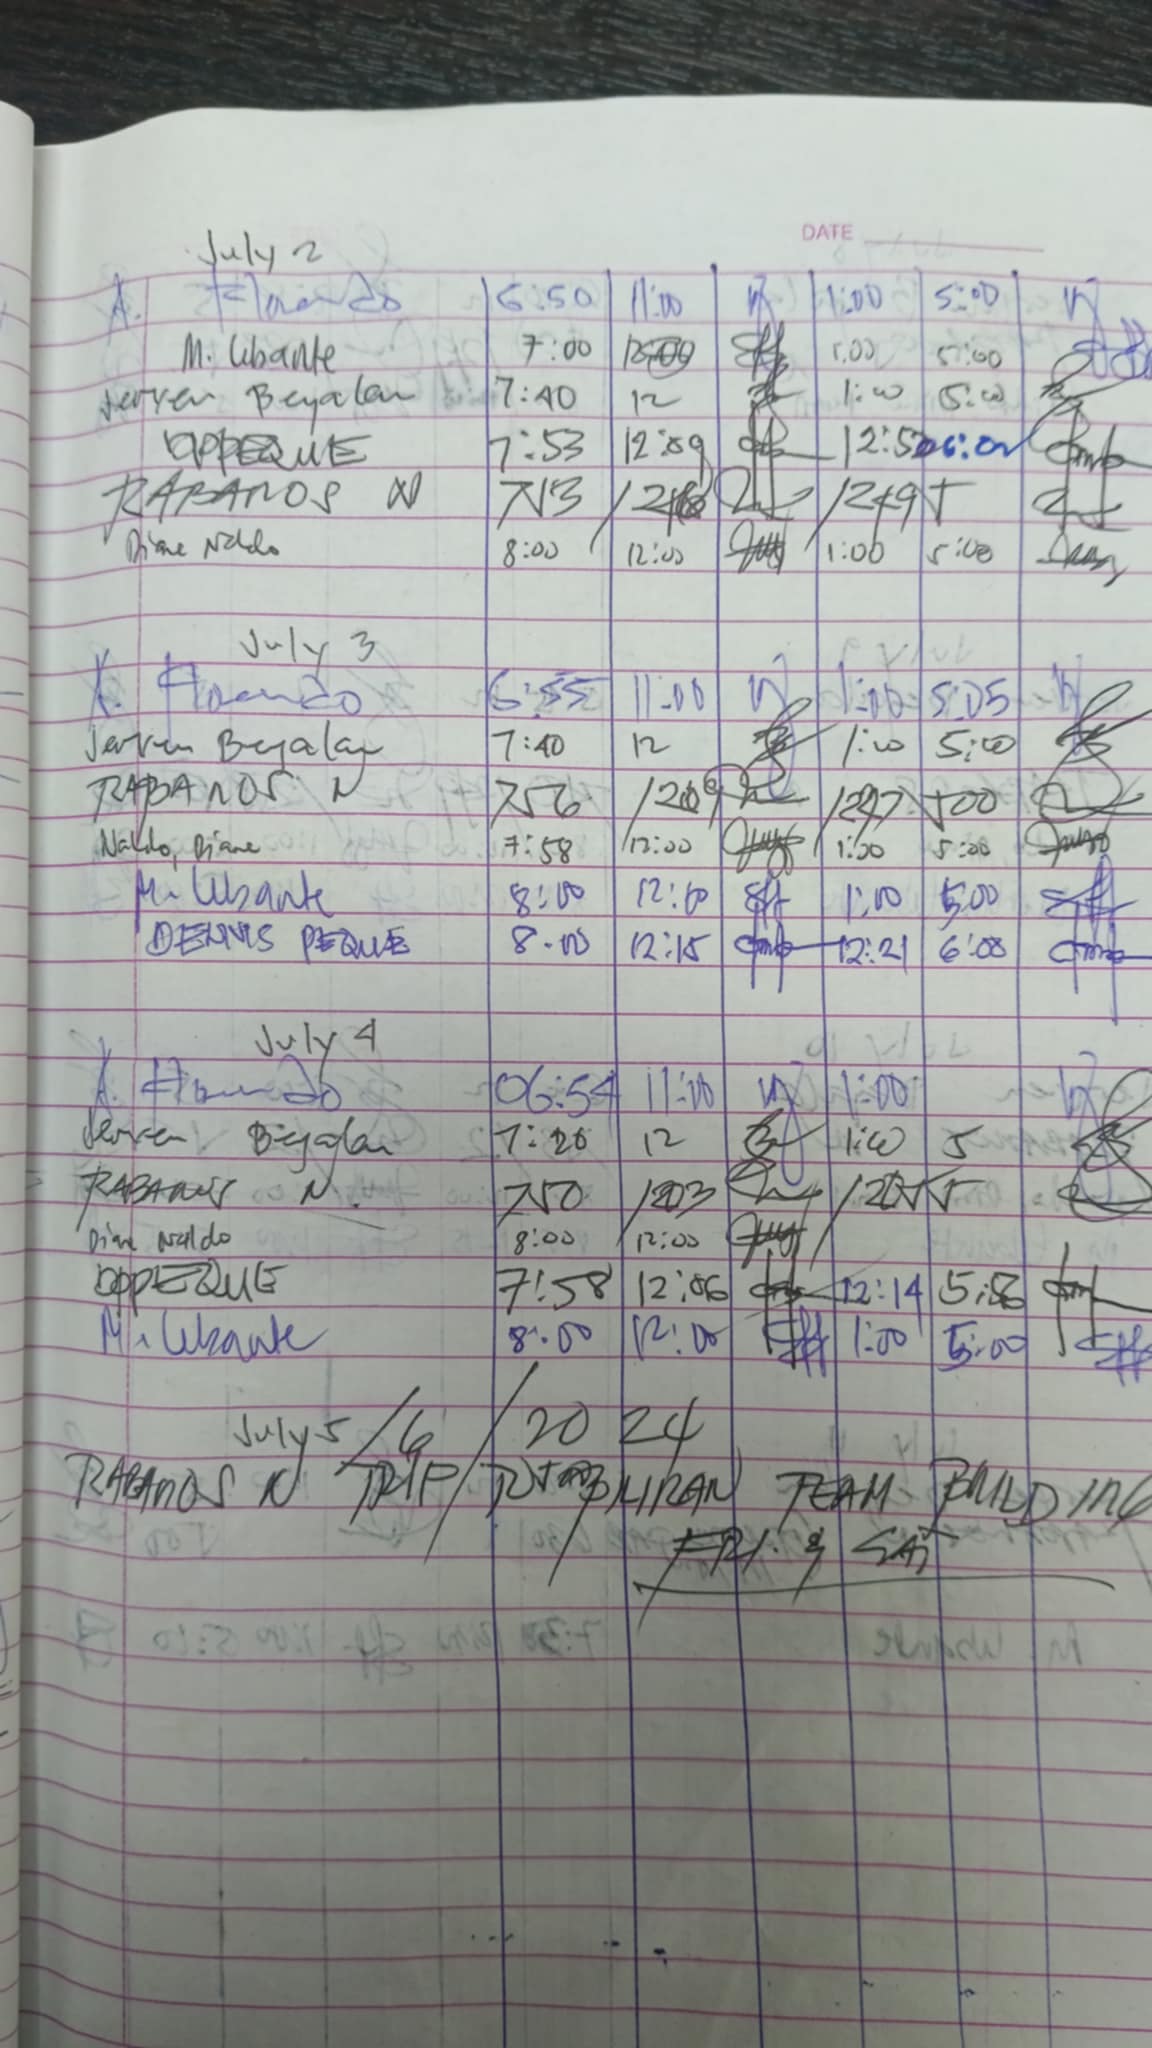 DATE
July 2
A. 6:50 11:00 1:00 5:00
M. Ubante 7:00 1:00 5:00
Jerven Begalan 7:40 12 1:00 5:00
DPPEQUE 7:53 12:09 12:52 6:02
RABANOS N 753 1249 5
Diane Naldo 8:00 12:00 1:00 5:00
July 3
A. 6:55 11:00 1:00 5:05
Jerven Begalan 7:40 12 1:00 5:00
RABANOS N 756 1209 1247 500
Naldo, Diane 7:58 12:00 1:00 5:00
M. Ubante 8:00 12:00 1:00 5:00
DENNIS PEQUE 8:00 12:15 12:21 6:08
July 4
A. 06:54 11:00 1:00
Jerven Begalan 7:20 12 1:00 5
RABANOS N. 750 1203 1255 5
Diane Naldo 8:00 12:00
DPPEQUE 7:58 12:06 12:14 5:56
M. Ubante 8:00 12:00 1:00 5:00
July 5/6/2024
RABANOS N TRIP/ BILIRAN TEAM BUILDING
FRI. & SAT